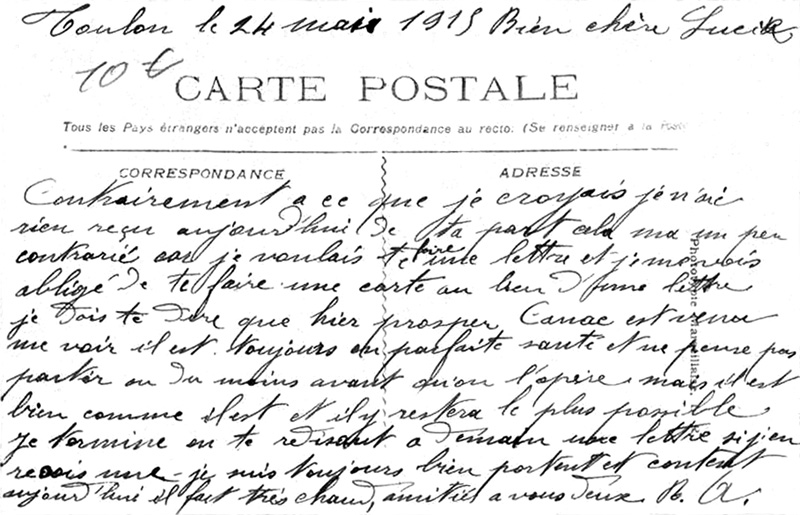 Toulon le 24 mais 1915 Bien chère Lucie
10 €
CARTE POSTALE
Tous les Pays étrangers n'acceptent pas la Correspondance au recto. (Se renseigner à la Poste
CORRESPONDANCE
ADRESSE
Contrairement a ce que je croyais je n'ai
rien reçu aujourd'hui de ta part cela ma un peu
contrarié car je voulais te faire une lettre et je me vois
abligé de te faire une carte au lieu d'une lettre
je dois te dire que hier prosper Canac est venu
me voir il est toujours en parfaite santé et ne pense pas
partir ou du moins avant qu'on l'opère mais il est
bien comme il est et il y restera le plus possible
Je termine en te redisant a demain une lettre si j'en
recois une - je suis toujours bien portent et content
aujourd'hui il fait très chaud, amitiés a vous deux R. A.
Photographie Marseillaise.